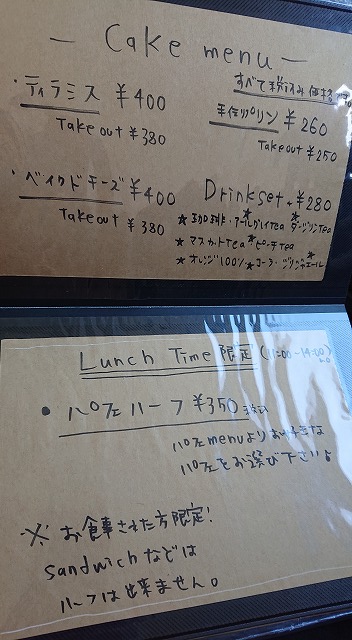 — Cake menu —
すべて税込み価格です
・ティラミス ¥400
Takeout ¥380
手作りプリン ¥260
Takeout ¥250
・ベイクドチーズ ¥400
Takeout ¥380
Drinkset + ¥280
★珈琲・アールグレイTea ★ダージリンTea
★マスカットTea ★ピーチTea
★オレンジ100% ★コーラ・★ジンジャエール
Lunch Time 限定 (11:00~14:00)
• パフェハーフ ¥350 税込
パフェmenuよりお好きな
パフェをお選び下さい♪
※ お食事された方限定!
sandwichなどは
ハーフは出来ません。